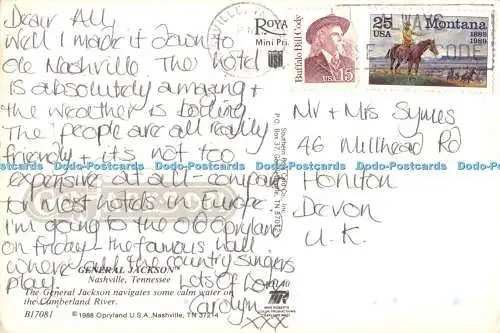 Dear All,
Well I made it down to
ole Nashville. The hotel
is absolutely amazing &
the weather is boiling.
The people are all really
friendly & it's not too
expensive at all - company
to most hotels in Europe.
I'm going to the old Opryland
on Friday - the famous hall
where all the country singers
play. Lots of Love
Carolyn xxx
GENERAL JACKSON™
Nashville, Tennessee
The General Jackson navigates some calm water on
the Cumberland River.
B17081
© 1988 Opryland U.S.A., Nashville, TN 37214
ROYAL
Mini Pri
Southern
P.O. Box 37
TN 37072
Buffalo Bill Cody
USA 15
25 Montana
USA 1889
1989
ZIP CODE
Mr & Mrs Symes
46 Millhead Rd
Honiton
Devon
U.K.
Dodo-Postcards Dodo-Postcards Dodo-Postcards Dodo-Postcards Dodo-Postcards Dodo-Postcards